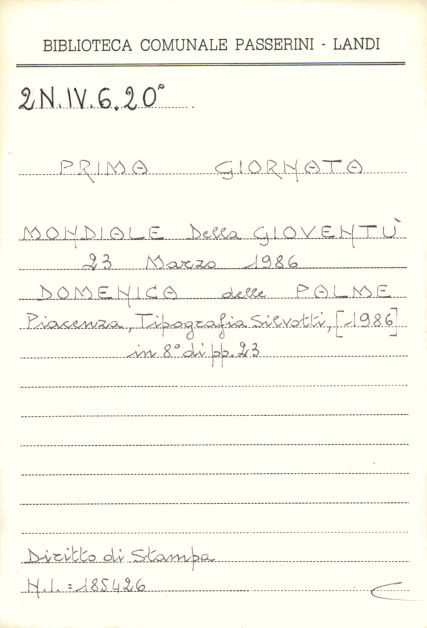 BIBLIOTECA COMUNALE PASSERINI - LANDI
2N.IV.6.20°
PRIMA GIORNATA
MONDIALE Della GIOVENTÙ
23 Marzo 1986
DOMENICA delle PALME
Piacenza, Tipografia Silvotti, [1986]
in 8° di pp. 23
Diritto di Stampa
N.I. = 185426